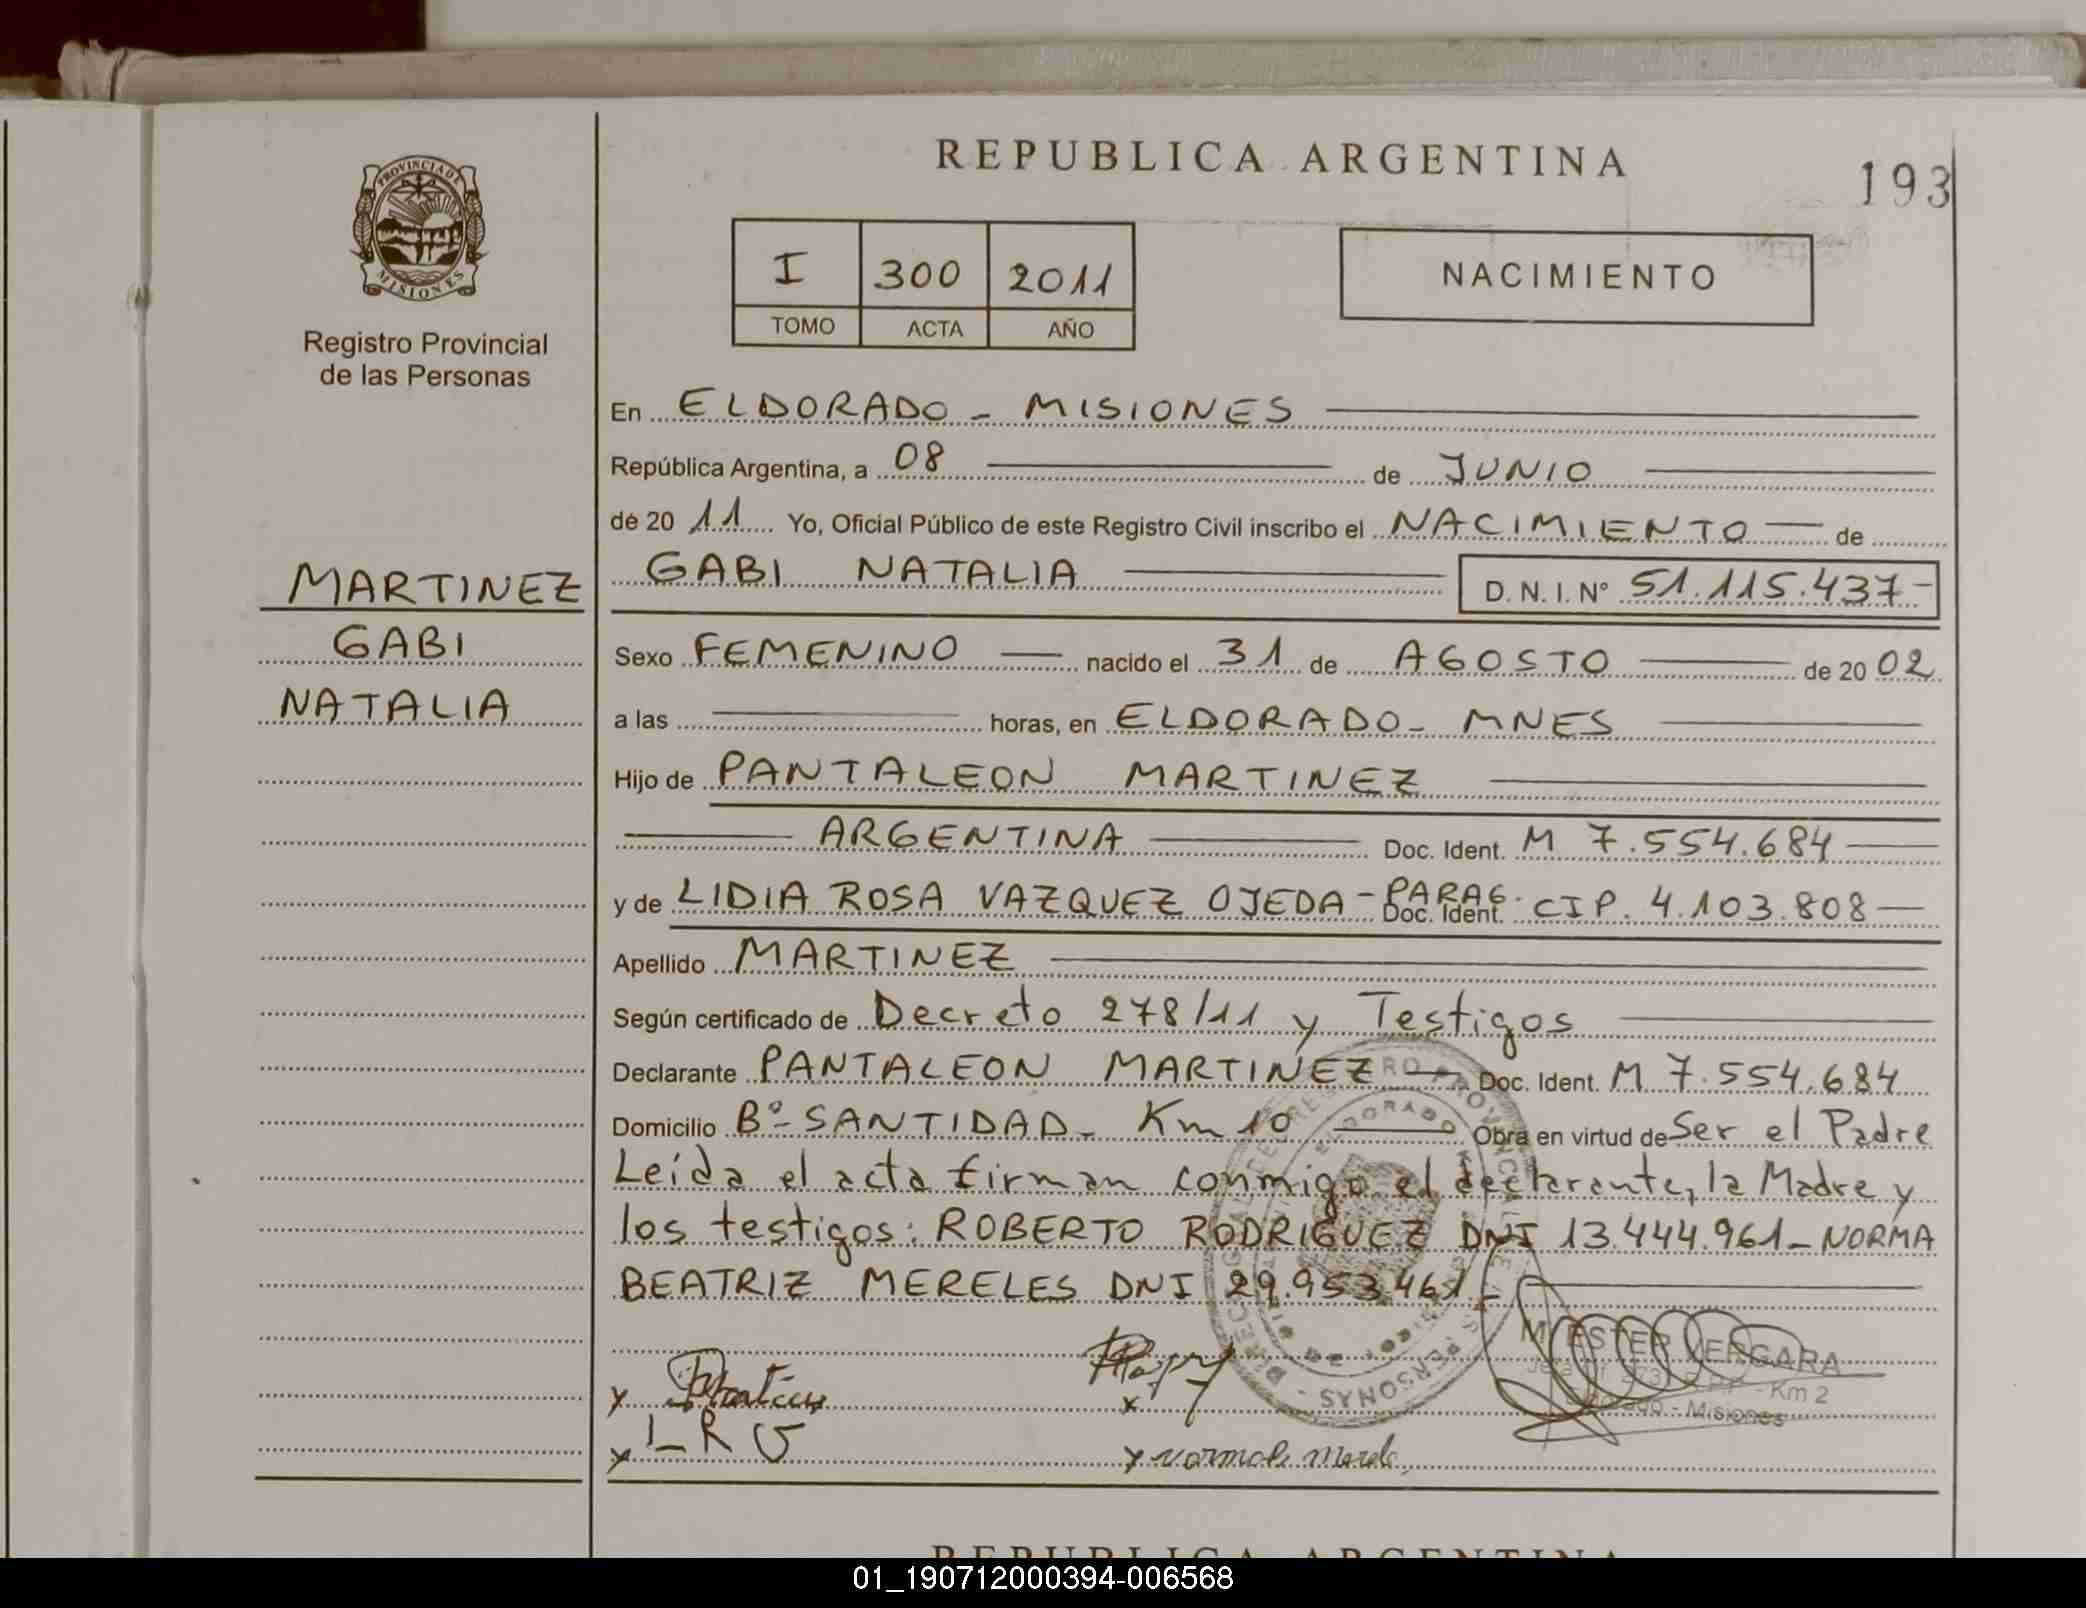 PROVINCIA DE
MISIONES
Registro Provincial
de las Personas
REPUBLICA ARGENTINA
193
I 300 2011
TOMO ACTA AÑO
NACIMIENTO
En ELDORADO - MISIONES
República Argentina, a 08 de JUNIO
de 20 11 Yo, Oficial Público de este Registro Civil inscribo el NACIMIENTO de
GABI NATALIA D. N. I. Nº 51.115.437-
MARTINEZ
GABI
NATALIA
Sexo FEMENINO nacido el 31 de AGOSTO de 20 02
a las horas, en ELDORADO - MNES
Hijo de PANTALEON MARTINEZ
ARGENTINA Doc. Ident. M 7.554.684
y de LIDIA ROSA VAZQUEZ OJEDA - PARAG. Doc. Ident. CIP. 4.103.808
Apellido MARTINEZ
Según certificado de Decreto 278/11 y Testigos
Declarante PANTALEON MARTINEZ Doc. Ident. M 7.554.684
Domicilio Bº- SANTIDAD - Km 10 Obra en virtud de Ser el Padre
Leída el acta firman conmigo el declarante, la Madre y
los testigos: ROBERTO RODRIGUEZ DNI 13.444.961 - NORMA
BEATRIZ MERELES DNI 29.953.461 -
ESTER VERGARA
Km 2
Misiones
L R V
REPUBLICA ARGENTINA
01_190712000394-006568